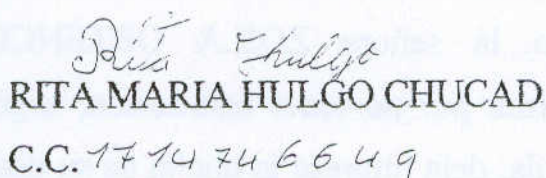 Rita Hulgo
RITA MARIA HULGO CHUCAD
C.C. 1714746649